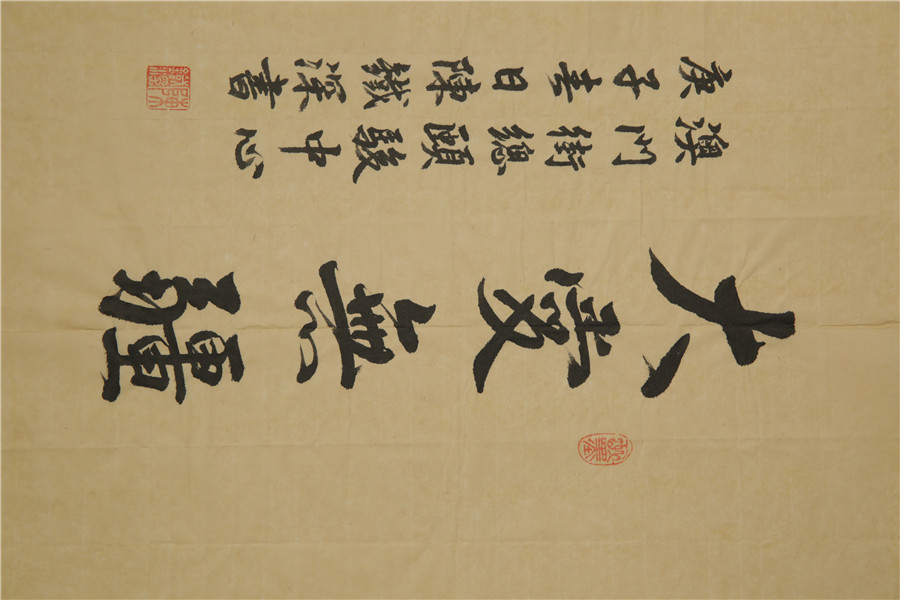 大愛無疆
澳門街總頤駿中心
庚子春日陳鐵深書